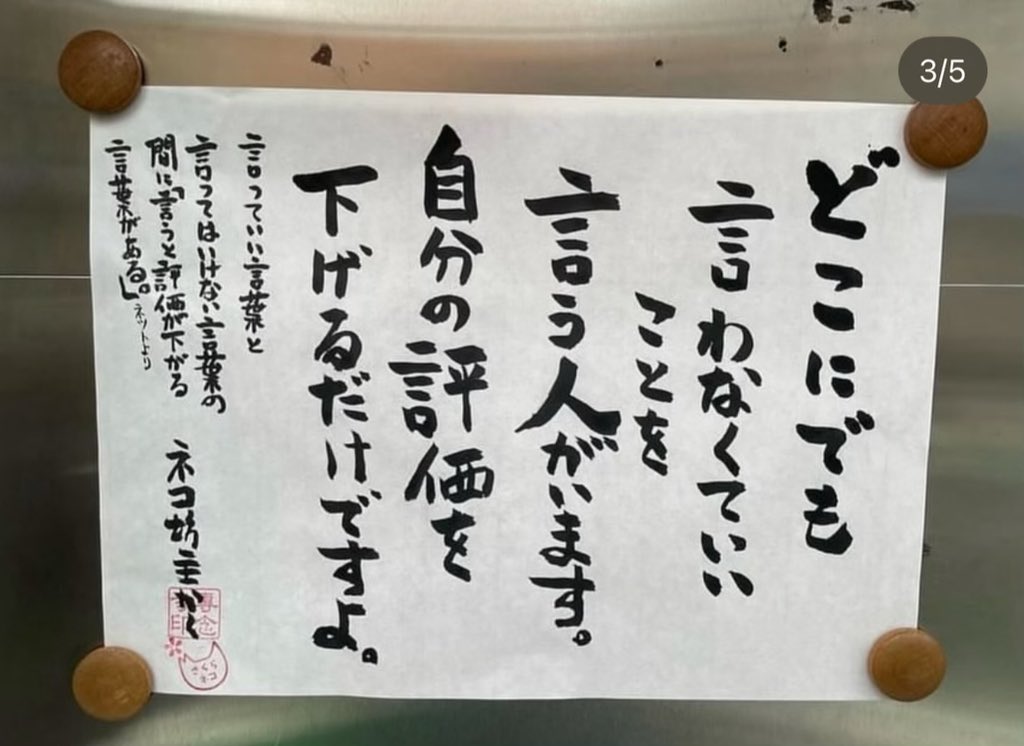 3/5
どこにでも
言わなくていい
ことを
言う人がいます。
自分の評価を
下げるだけですよ。
言っていい言葉と
言ってはいけない言葉の
間に「言うと評価が下がる
言葉がある。」ネットより
ネコ坊主かく
さくら
ネコ